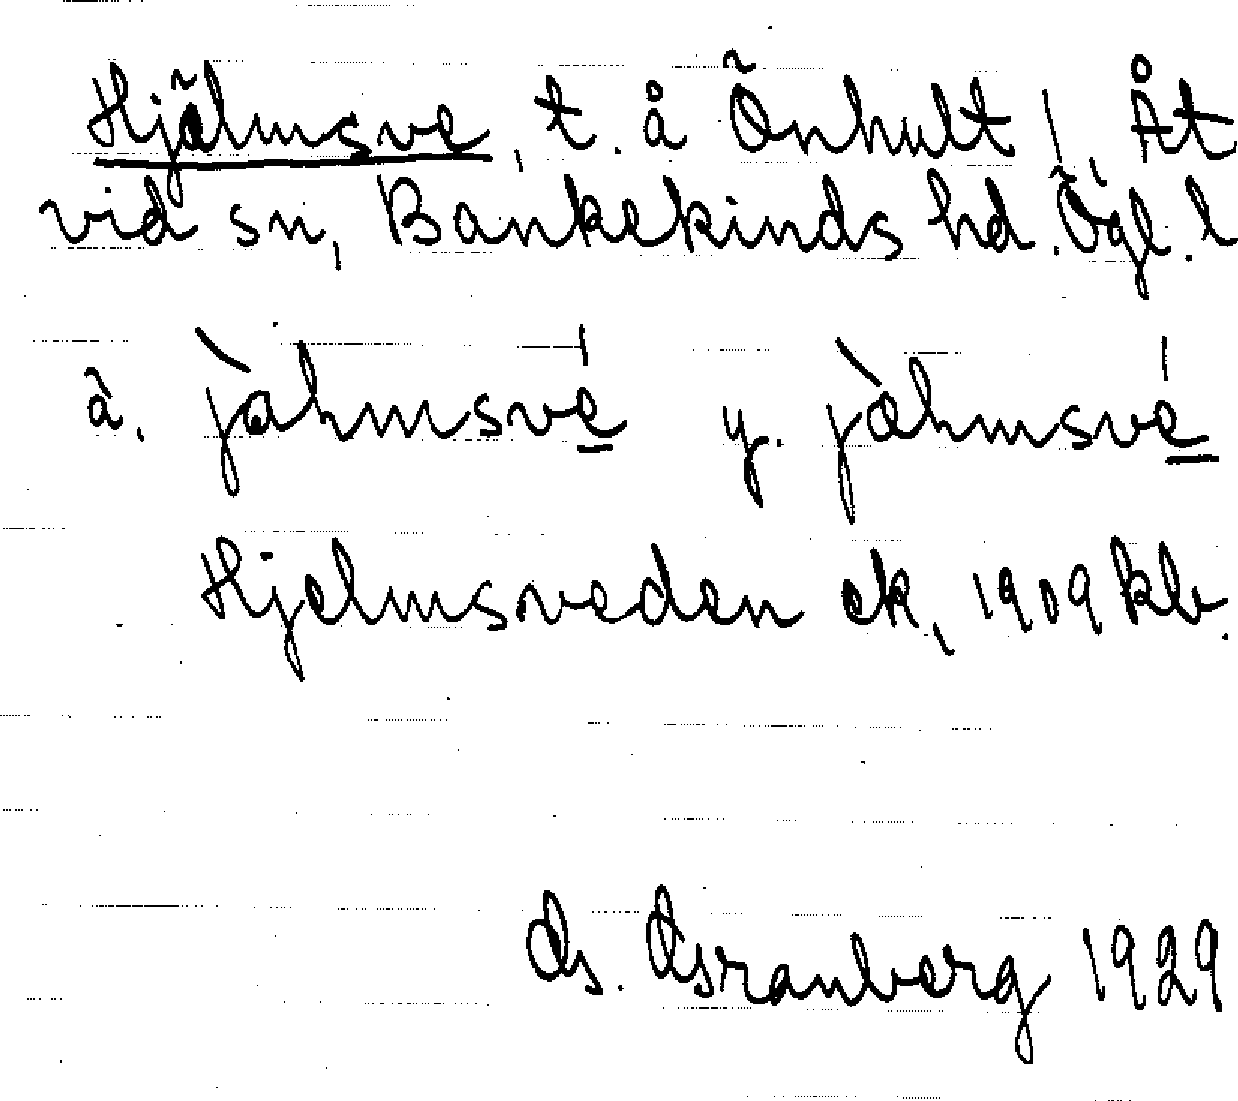 Hjälmsve, t. å Önhult, Åt
vid sn, Bankekinds hd. Ögl. l
ä. jàlmsvé y. jàlmsvé
Hjelmsveden ek, 1909 kb.
G. Granberg 1929